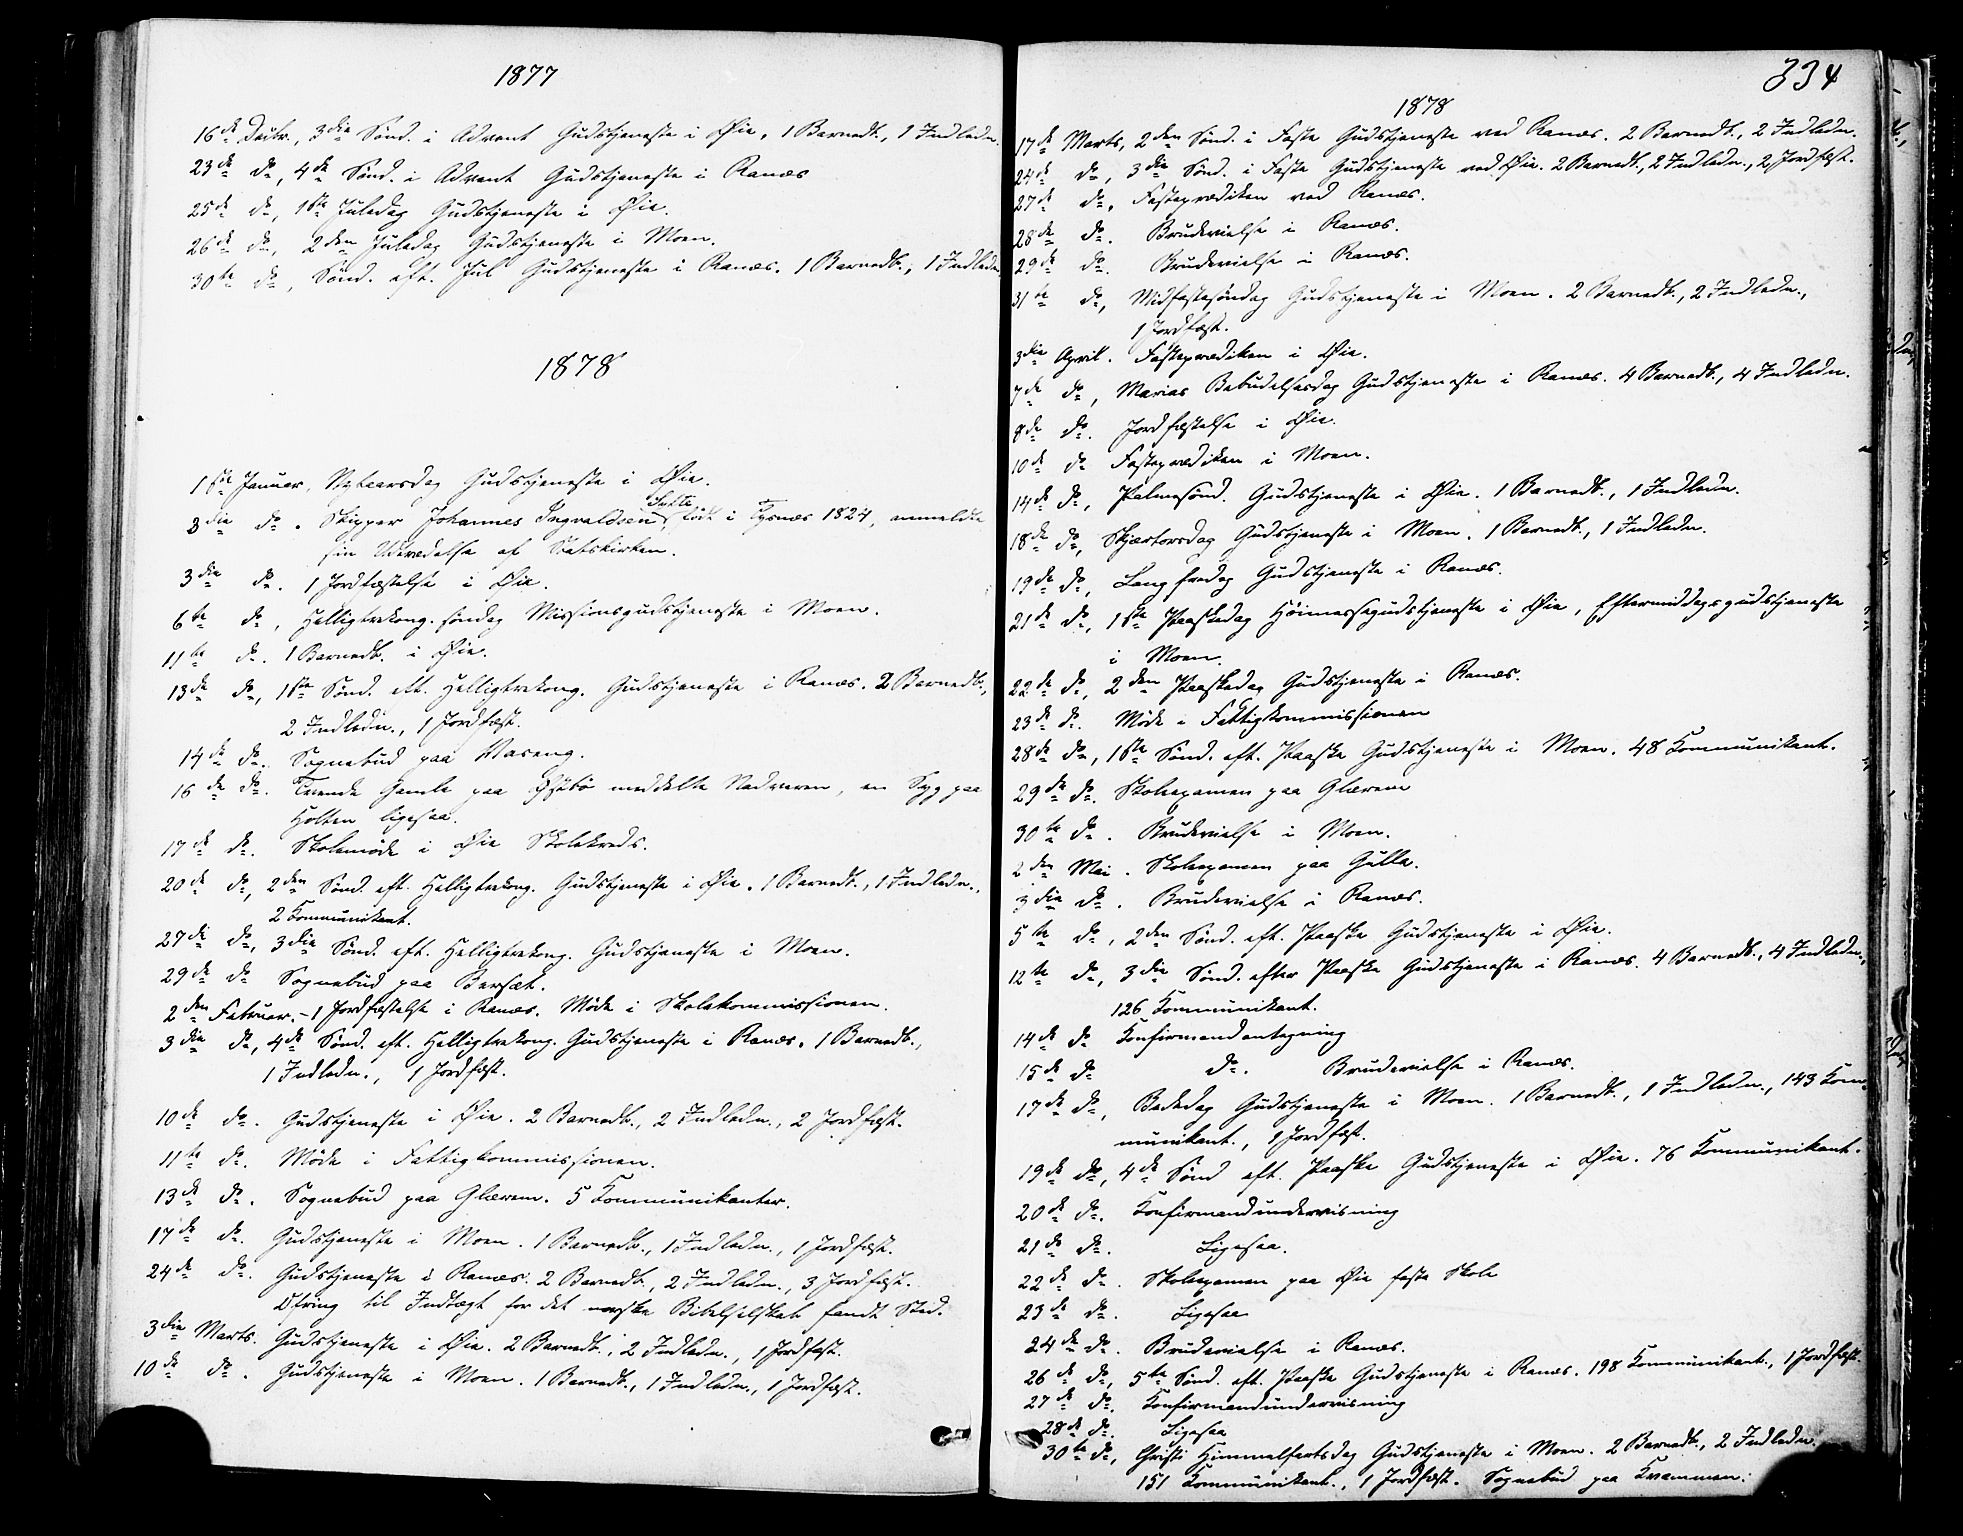 1877
16de Decbr., 3die Sønd. i Advent Gudstjeneste i Øie. 1 Barnedb., 1 Indledn.
23de do, 4de Sønd. i Advent Gudstjeneste i Ranæs
25de do, 1ste Juledag Gudstjeneste i Øie.
26de do, 2den Juledag Gudstjeneste i Moen.
30te do, Sønd. eft. Jul Gudstjeneste i Ranæs. 1 Barnedb., 1 Indledn.
1878
1ste Januar, Nytaarsdag Gudstjeneste i Øie.
3die do. Skipper Johannes Ingvaldsen Sætte, født i Tysnæs 1824, anmeldte
sin Udtrædelse af Statskirken.
3die do. 1 Jordfæstelse i Øie.
6te do, Helligtrekong. søndag Missionsgudstjeneste i Moen.
11te do. 1 Barnedb. i Øie.
13de do, 1ste Sønd. eft. Helligtrekong. Gudstjeneste i Ranæs. 2 Barnedb.,
2 Indledn., 1 Jordfæst.
14de do. Sognebud paa Vaseng.
16de do. Trende Gamle paa meddelte Nadveren, en Syg paa
Holten ligesaa.
17de do. Skolemøde i Øie Skolekreds.
20de do, 2den Sønd. eft. Helligtrekong. Gudstjeneste i Øie. 1 Barnedb., 1 Indledn.,
2 Kommunikant.
27de do, 3die Sønd. eft. Helligtrekong. Gudstjeneste i Moen.
29de do Sognebud paa Bersæt.
2den Februar. - 1 Jordfæstelse i Ranæs. Møde i Skolekommissionen.
3die do, 4de Sønd. eft. Helligtrekong. Gudstjeneste i Ranæs. 1 Barnedb.,
1 Indledn., 1 Jordfæst.
10de do. Gudstjeneste i Øie. 2 Barnedb., 2 Indledn., 2 Jordfæst.
11te do. Møde i Fattigkommissionen.
13de do. Sognebud paa Glærem. 5 Kommunikanter.
17de do. Gudstjeneste i Moen. 1 Barnedb., 1 Indledn., 1 Jordfæst.
24de do. Gudstjeneste i Ranæs. 2 Barnedb., 2 Indledn., 3 Jordfæst.
Ofring til Indtægt for det norske Bibelselskab fandt Sted.
3die Marts. Gudstjeneste i Øie. 2 Barnedb., 2 Indledn., 1 Jordfæst.
10de do. Gudstjeneste i Moen. 1 Barnedb., 1 Indledn., 1 Jordfæst.
334
1878
17de Marts, 2den Sønd. i Faste Gudstjeneste ved Ranæs. 2 Barnedb., 2 Indledn.
24de do, 3die Sønd. i Faste Gudstjeneste ved Øie. 2 Barnedb., 2 Indledn., 2 Jordfæst.
27de do. Fasteprædiken ved Ranæs.
28de do. Brudevielse i Ranæs.
29de do. Brudevielse i Ranæs.
31te do, Midfastesøndag Gudstjeneste i Moen. 2 Barnedb., 2 Indledn.,
1 Jordfæst.
3die April. Fasteprædiken i Øie.
7de do, Marias Bebudelsesdag Gudstjeneste i Ranæs. 4 Barnedb., 4 Indledn.
8de do. Jordfæstelse i Øie.
10de do Fasteprædiken i Moen.
14de do, Palmesønd. Gudstjeneste i Øie. 1 Barnedb., 1 Indledn.
18de do, Skjærtorsdag Gudstjeneste i Moen. 1 Barnedb., 1 Indledn.
19de do, Langfredag Gudstjeneste i Ranæs.
21de do, 1ste Paaskedag Høimessegudstjeneste i Øie, Eftermiddagsgudstjeneste
i Moen.
22de do, 2den Paaskedag Gudstjeneste i Ranæs.
23de do. Møde i Fattigkommissionen
28de do, 1ste Sønd. eft. Paaske Gudstjeneste i Moen. 48 Kommunikant.
29de do. Skoleexamen paa Glærem
30te do. Brudevielse i Moen.
2den Mai. Skoleexamen paa Gulla.
3die do. Brudevielse i Ranæs.
5te do, 2den Sønd. eft. Paaske Gudstjeneste i Øie.
12te do, 3die Sønd. efter Paaske Gudstjeneste i Ranæs. 4 Barnedb., 4 Indledn.,
126 Kommunikant.
14de do Konfirmandantegning
15de do do. Brudevielse i Ranæs.
17de do, Bededag Gudstjeneste i Moen. 1 Barnedb., 1 Indledn., 143 Kom-
munikant., 1 Jordfæst.
19de do, 4de Sønd eft. Paaske Gudstjeneste i Øie. 76 Kommunikant.
20de do. Konfirmandundervisning
21de do. Ligesaa.
22de do. Skoleexamen paa Øie faste Skole
23de do. Ligesaa
24de do. Brudevielse i Ranæs.
26de do, 5te Sønd. eft. Paaske Gudstjeneste i Ranæs. 198 Kommunikant., 1 Jordfæst.
27de do. Konfirmandundervisning
28de do. Ligesaa
30te do, Christi Himmelfartsdag Gudstjeneste i Moen. 2 Barnedb., 2 Indledn.
151 Kommunikant., 1 Jordfæst. Sognebud paa Kvammen.